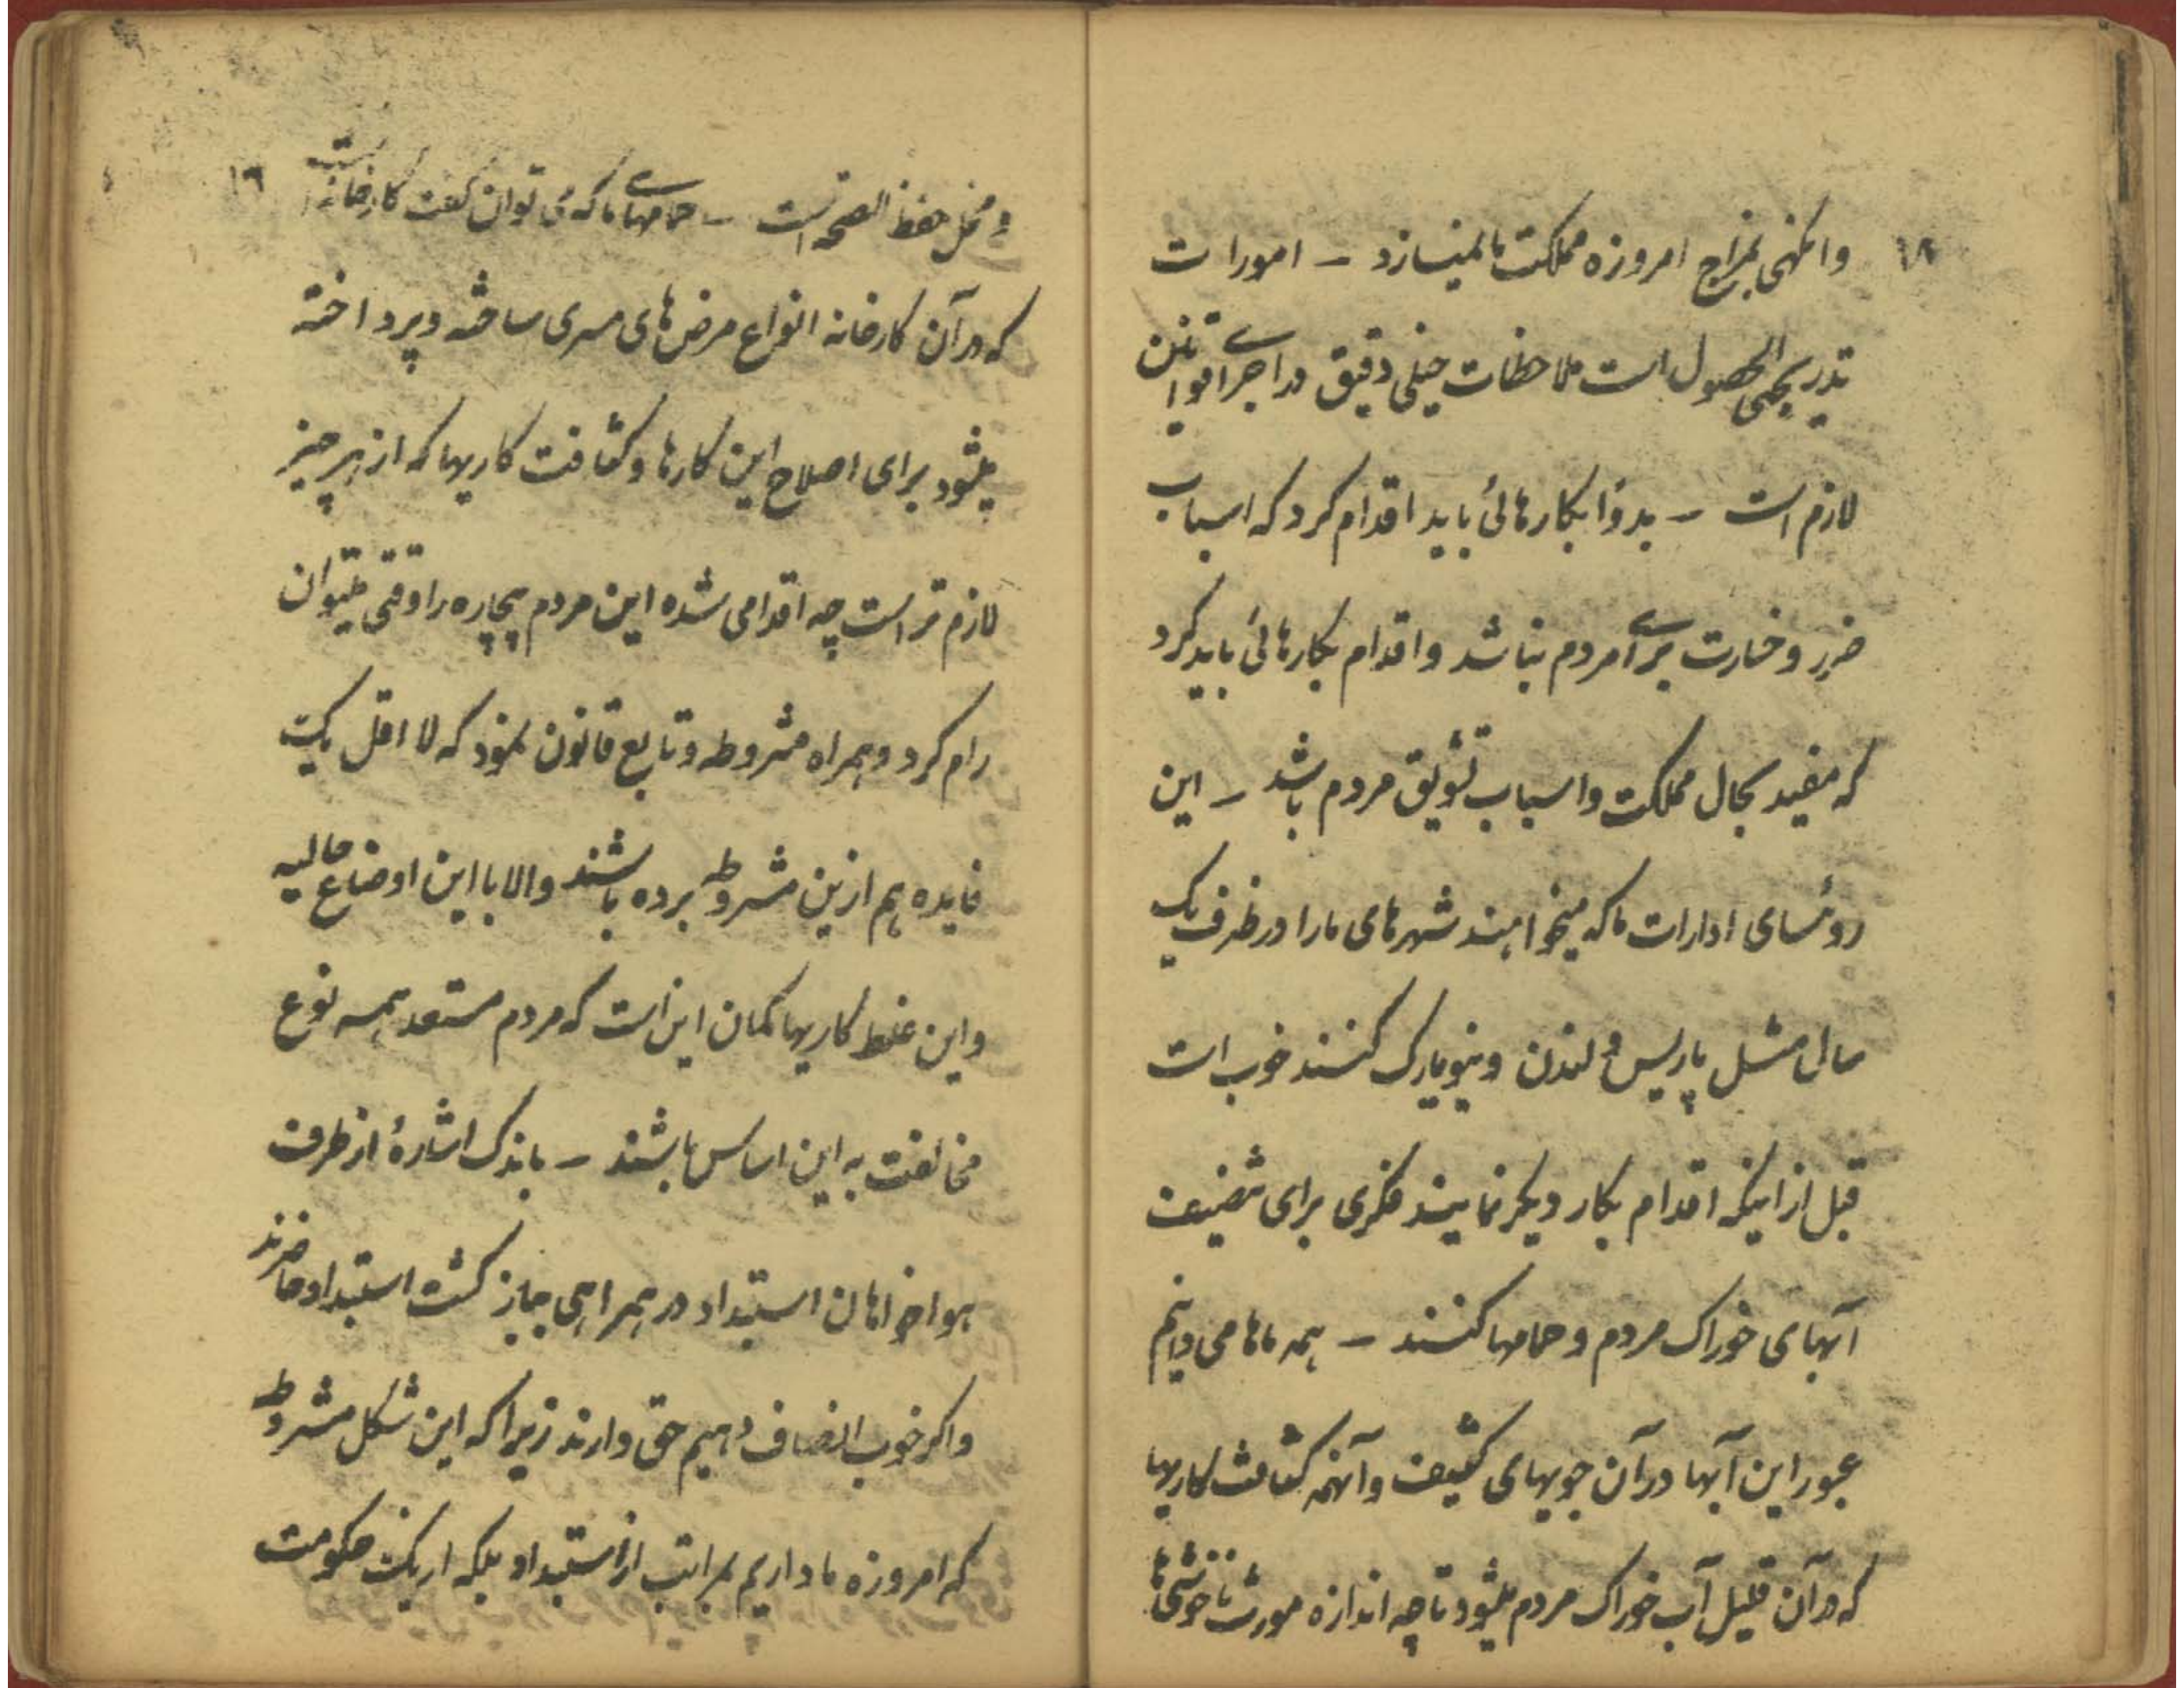 ۱۸
وانگهی بمزاج امروزه مملکت ما نمیسازد – امورات
تدریجی الحصول است ملاحظات خیلی دقیق در اجرای قوانین
لازم است – بدواً بکارهائی باید اقدام کرد که اسباب
ضرر و خسارت برای مردم نباشد و اقدام بکارهائی باید کرد
که مفید بحال مملکت و اسباب تشویق مردم باشد – این
روئسای ادارات ما که میخواهند شهرهای ما را در ظرف یک
سال مثل پاریس و لندن و نیویارک کنند خوب است
قبل از اینکه اقدام بکار دیگر نمایند فکری برای تنضیف
آبهای خوراک مردم و حمامها کنند – همه ماها می دانیم
عبور این آبها در آن جویهای کثیف و آنهمه کثافت کاریها
که در آن قلیل آب خوراک مردم میشود تا چه اندازه مورث ناخوشی ها
۱۹
و مخل حفظ الصحه است – حمامهای ما که می توان گفت کارخانه است
که در آن کارخانه انواع مرض های مسری ساخته و پرداخته
میشود برای اصلاح این کارها و کثافت کاریها که از هر چیز
لازم تر است چه اقدامی شده این مردم بیچاره را وقتی میتوان
رام کرد و همراه مشروطه و تابع قانون نمود که لا اقل یک
فایده هم ازین مشروطه برده باشند والا با این اوضاع حالیه
و این غلط کاریها گمان این است که مردم مستعد همه نوع
مخالفت به این اساس باشند – باندک اشارهٔ از طرف
هواخواهان استبداد در همراهی جابز گشت استبداد حاضرند
و اگر خوب انصاف دهیم حق دارند زیرا که این شکل مشروطه
که امروزه ما داریم بمراتب از استبداد بلکه از یک حکومت